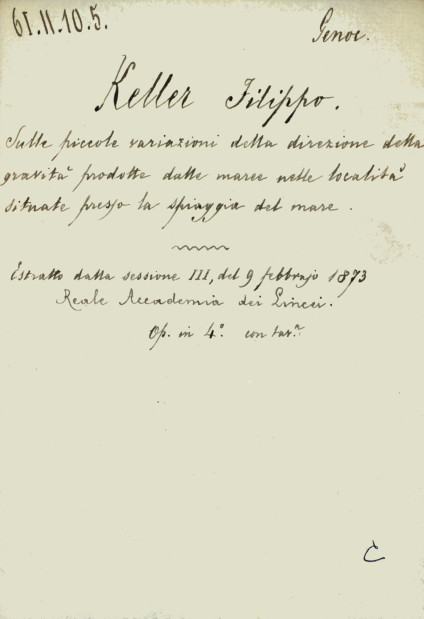 61.11.10.5.
Genoc.
Keller Filippo.
Sulle piccole variazioni della direzione della
gravità prodotte dalle maree nelle località
situate presso la spiaggia del mare.
Estratto dalla sessione III, del 9 febbrajo 1873
Reale Accademia dei Lincei.
Op. in 4.° con tav.ª
C